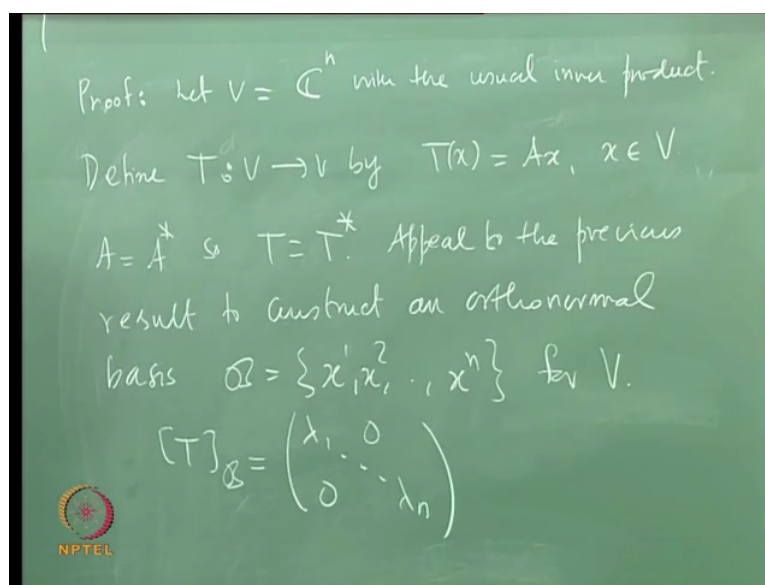 Proof: Let V = ℂⁿ with the usual inner product.
Define T: V → V by T(x) = Ax, x ∈ V
A = A* so T = T*. Appeal to the previous
result to construct an orthonormal
basis ℬ = {x¹, x², ., xⁿ} for V.
[T]_ℬ = (λ₁ 0
⋱
0 λₙ)
NPTEL